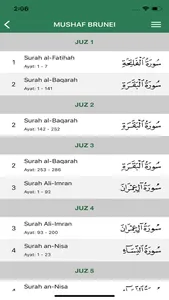 2:08
MUSHAF BRUNEI
JUZ 1
1 Surah al-Fatihah سُورَةُ ٱلْفَاتِحَةِ
Ayat: 1 - 7
2 Surah al-Baqarah سُورَةُ ٱلْبَقَرَةِ
Ayat: 1 - 141
JUZ 2
2 Surah al-Baqarah سُورَةُ ٱلْبَقَرَةِ
Ayat: 142 - 252
JUZ 3
2 Surah al-Baqarah سُورَةُ ٱلْبَقَرَةِ
Ayat: 253 - 286
3 Surah Ali-Imran سُورَةُ آلِ عِمْرَانَ
Ayat: 1 - 92
JUZ 4
3 Surah Ali-Imran سُورَةُ آلِ عِمْرَانَ
Ayat: 93 - 200
4 Surah an-Nisa سُورَةُ ٱلنِّسَاءِ
Ayat: 1 - 23
JUZ 5
4 Surah an-Nisa سُورَةُ ٱلنِّسَاءِ